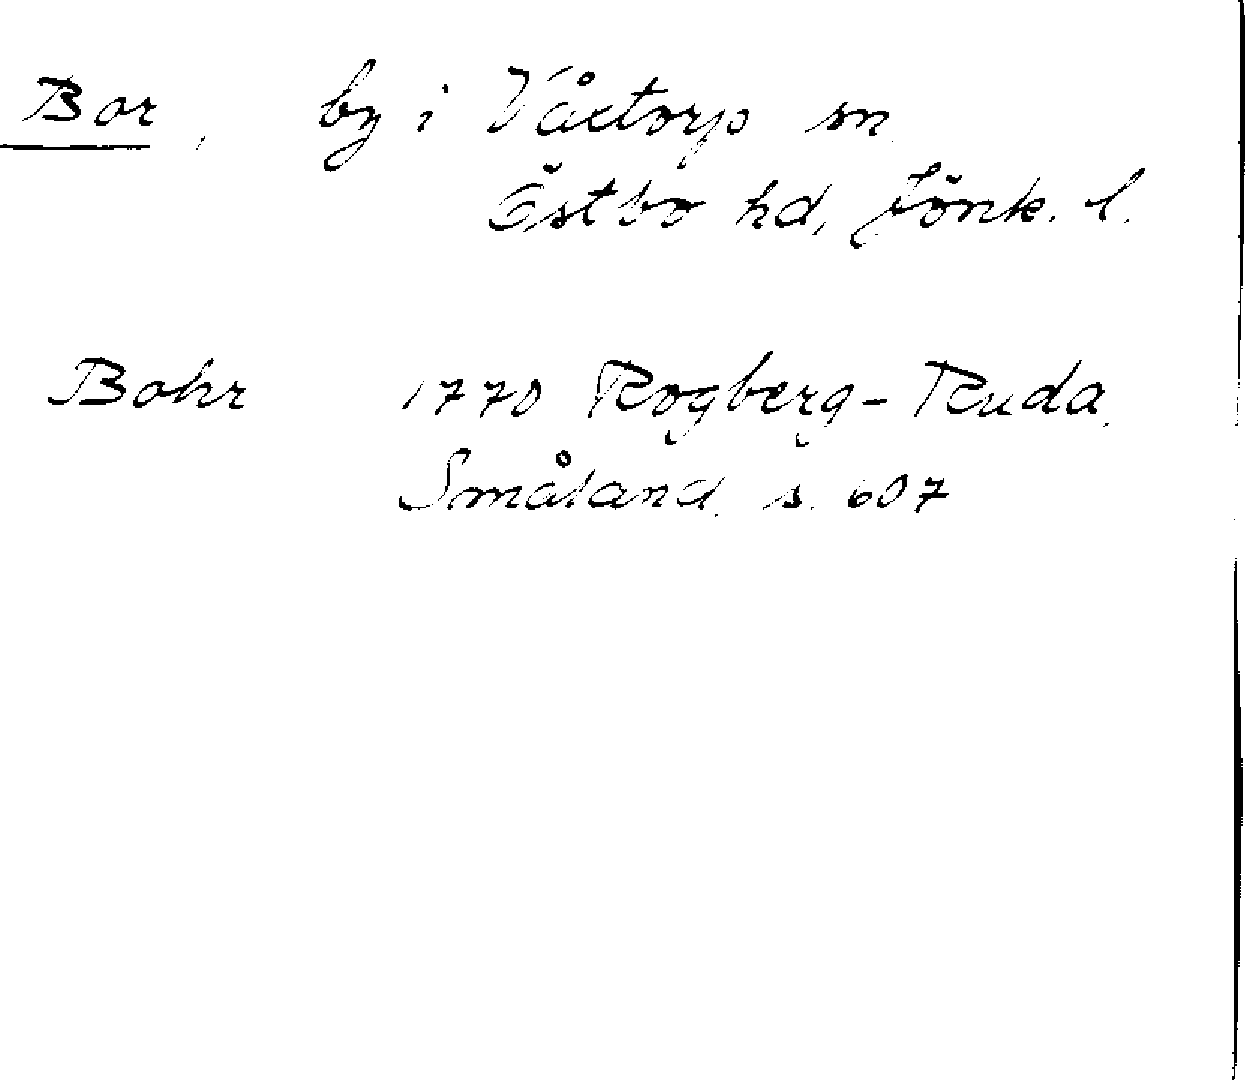 Bor, by i Våxtorp sn
Östbo hd, Jönk. l.
Bohr 1770 Rogberg-Ruda,
Småland, s. 607